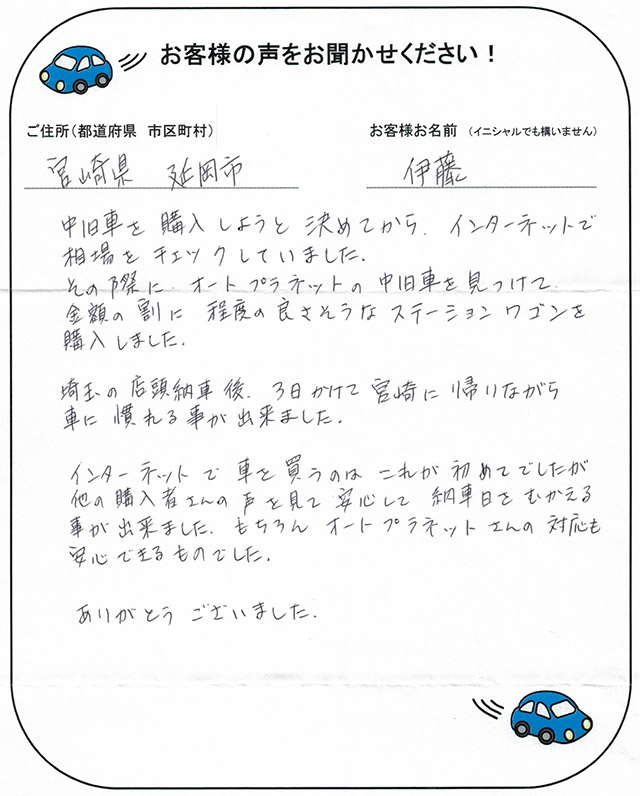 お客様の声をお聞かせください！
ご住所（都道府県 市区町村）
お客様お名前（イニシャルでも構いません）
宮崎県 延岡市
伊藤
中旧車を購入しようと決めてから、インターネットで
相場をチェックしていました。
その際に、オートプラネットの中旧車を見つけて、
金額の割に程度の良さそうなステーションワゴンを
購入しました。
埼玉の店頭納車後、3日かけて宮崎に帰りながら
車に慣れる事が出来ました。
インターネットで車を買うのはこれが初めてでしたが
他の購入者さんの声を見て安心して納車日をむかえる
事が出来ました。もちろんオートプラネットさんの対応も
安心できるものでした。
ありがとうございました。